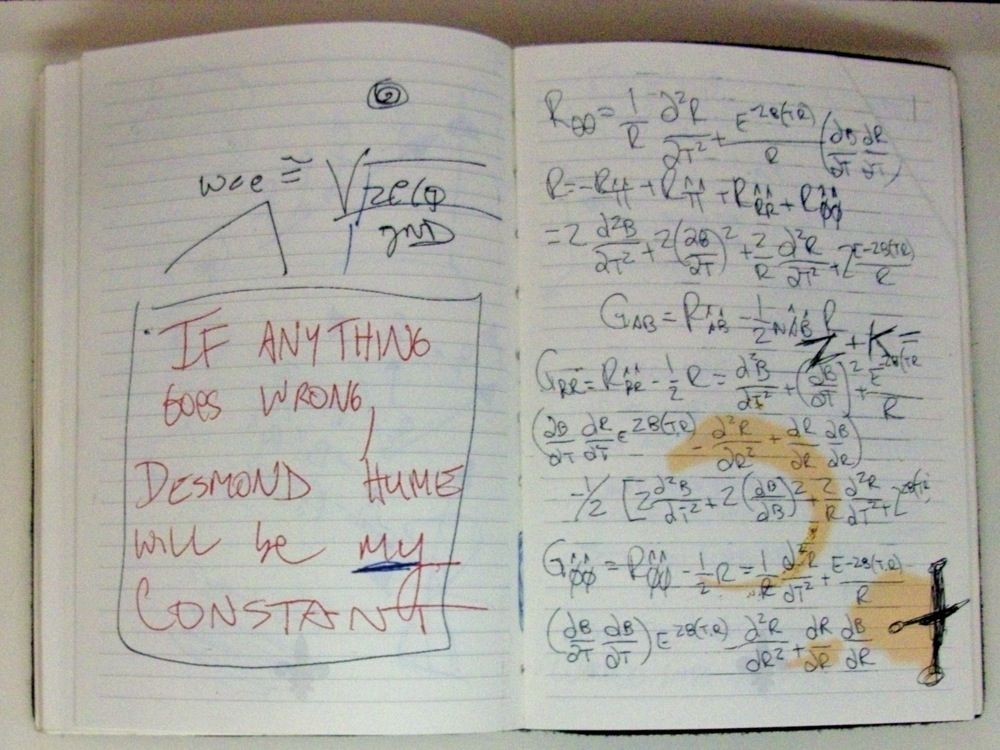 wce ≅ √
IF ANYTHING
GOES WRONG,
DESMOND HUME
WILL be my
CONSTANT
R_θθ = 1/R ∂²R/∂T² + E^-2B(T,R)/R (∂B/∂T ∂R/∂T)
R = -R_TT + R_TT + R_RR + R_ΦΦ
= 2 ∂²B/∂T² + 2(∂B/∂T)² + 2/R ∂²R/∂T² + 2 E^-2B(T,R)/R
G_AB = R_AB - 1/2 N_AB R
+ K =
G_RR = R_RR - 1/2 R = ∂²B/∂T² + (∂B/∂T)² + E^-2B(T,R)/R
(∂B/∂T ∂R/∂T E^2B(T,R) - ∂²R/∂R² + ∂R/∂R ∂B/∂R)
-1/2 [2 ∂²B/∂T² + 2(∂B/∂B)² + 2/R ∂²R/∂T² +
G_ΦΦ = R_ΦΦ - 1/2 R = 1/R ∂²R/∂T² + E^-2B(T,R)/R
(∂B/∂T ∂B/∂T) E^2B(T,R) ∂²R/∂R² + ∂R/∂R ∂B/∂R